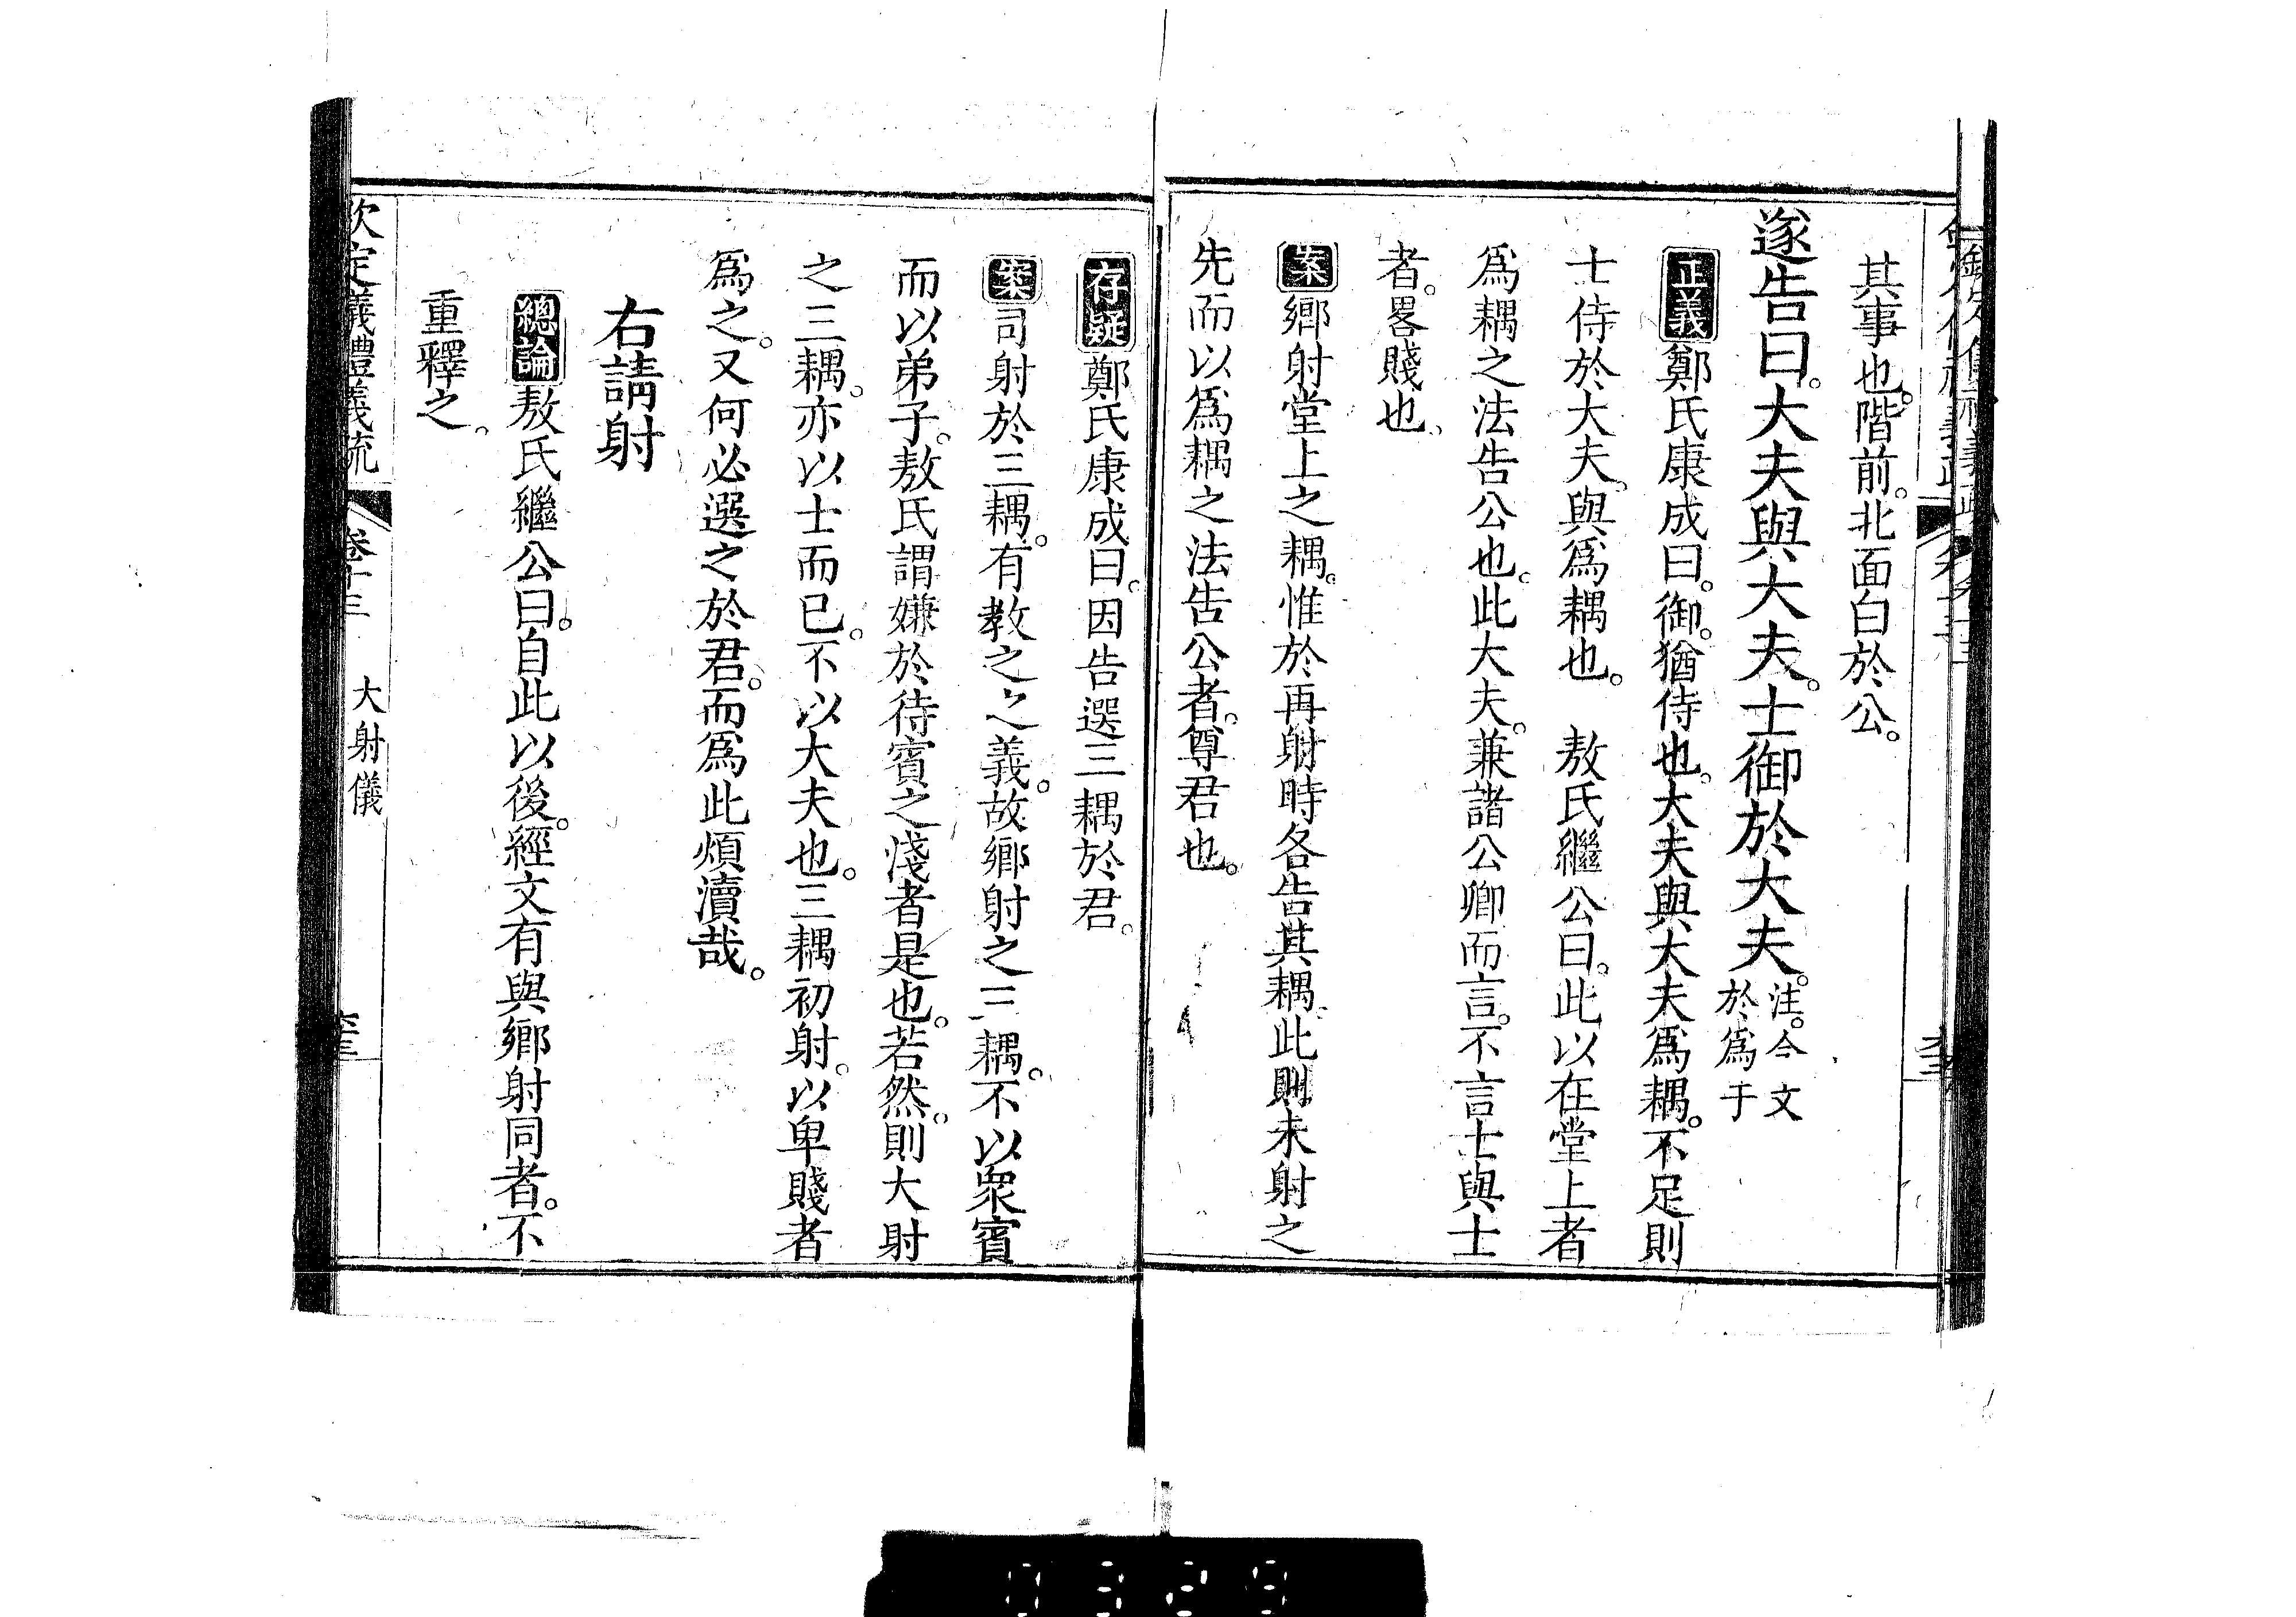 其事也。階前。北面白於公。
遂告曰。大夫與大夫。士御於大夫。注。今文
於爲于
正義鄭氏康成曰。御。猶侍也。大夫與大夫爲耦。不足則
士侍於大夫。與爲耦也。　敖氏繼公曰。此以在堂上者
爲耦之法告公也。此大夫。兼諸公卿而言。不言士與士
者。畧賤也。
案鄉射堂上之耦。惟於再射時各告其耦。此則未射之
先而以爲耦之法告公者。尊君也。
存疑鄭氏康成曰。因告選三耦於君。
案司射於三耦。有教之之義。故鄉射之三耦。不以眾賓
而以弟子。敖氏謂嫌於待賓之淺者是也。若然。則大射
之三耦。亦以士而已。不以大夫也。三耦初射。以卑賤者
爲之。又何必選之於君。而爲此煩瀆哉。
右請射
總論敖氏繼公曰。自此以後。經文有與鄉射同者。不
重釋之。
欽定儀禮義疏　卷十三　大射儀
0329